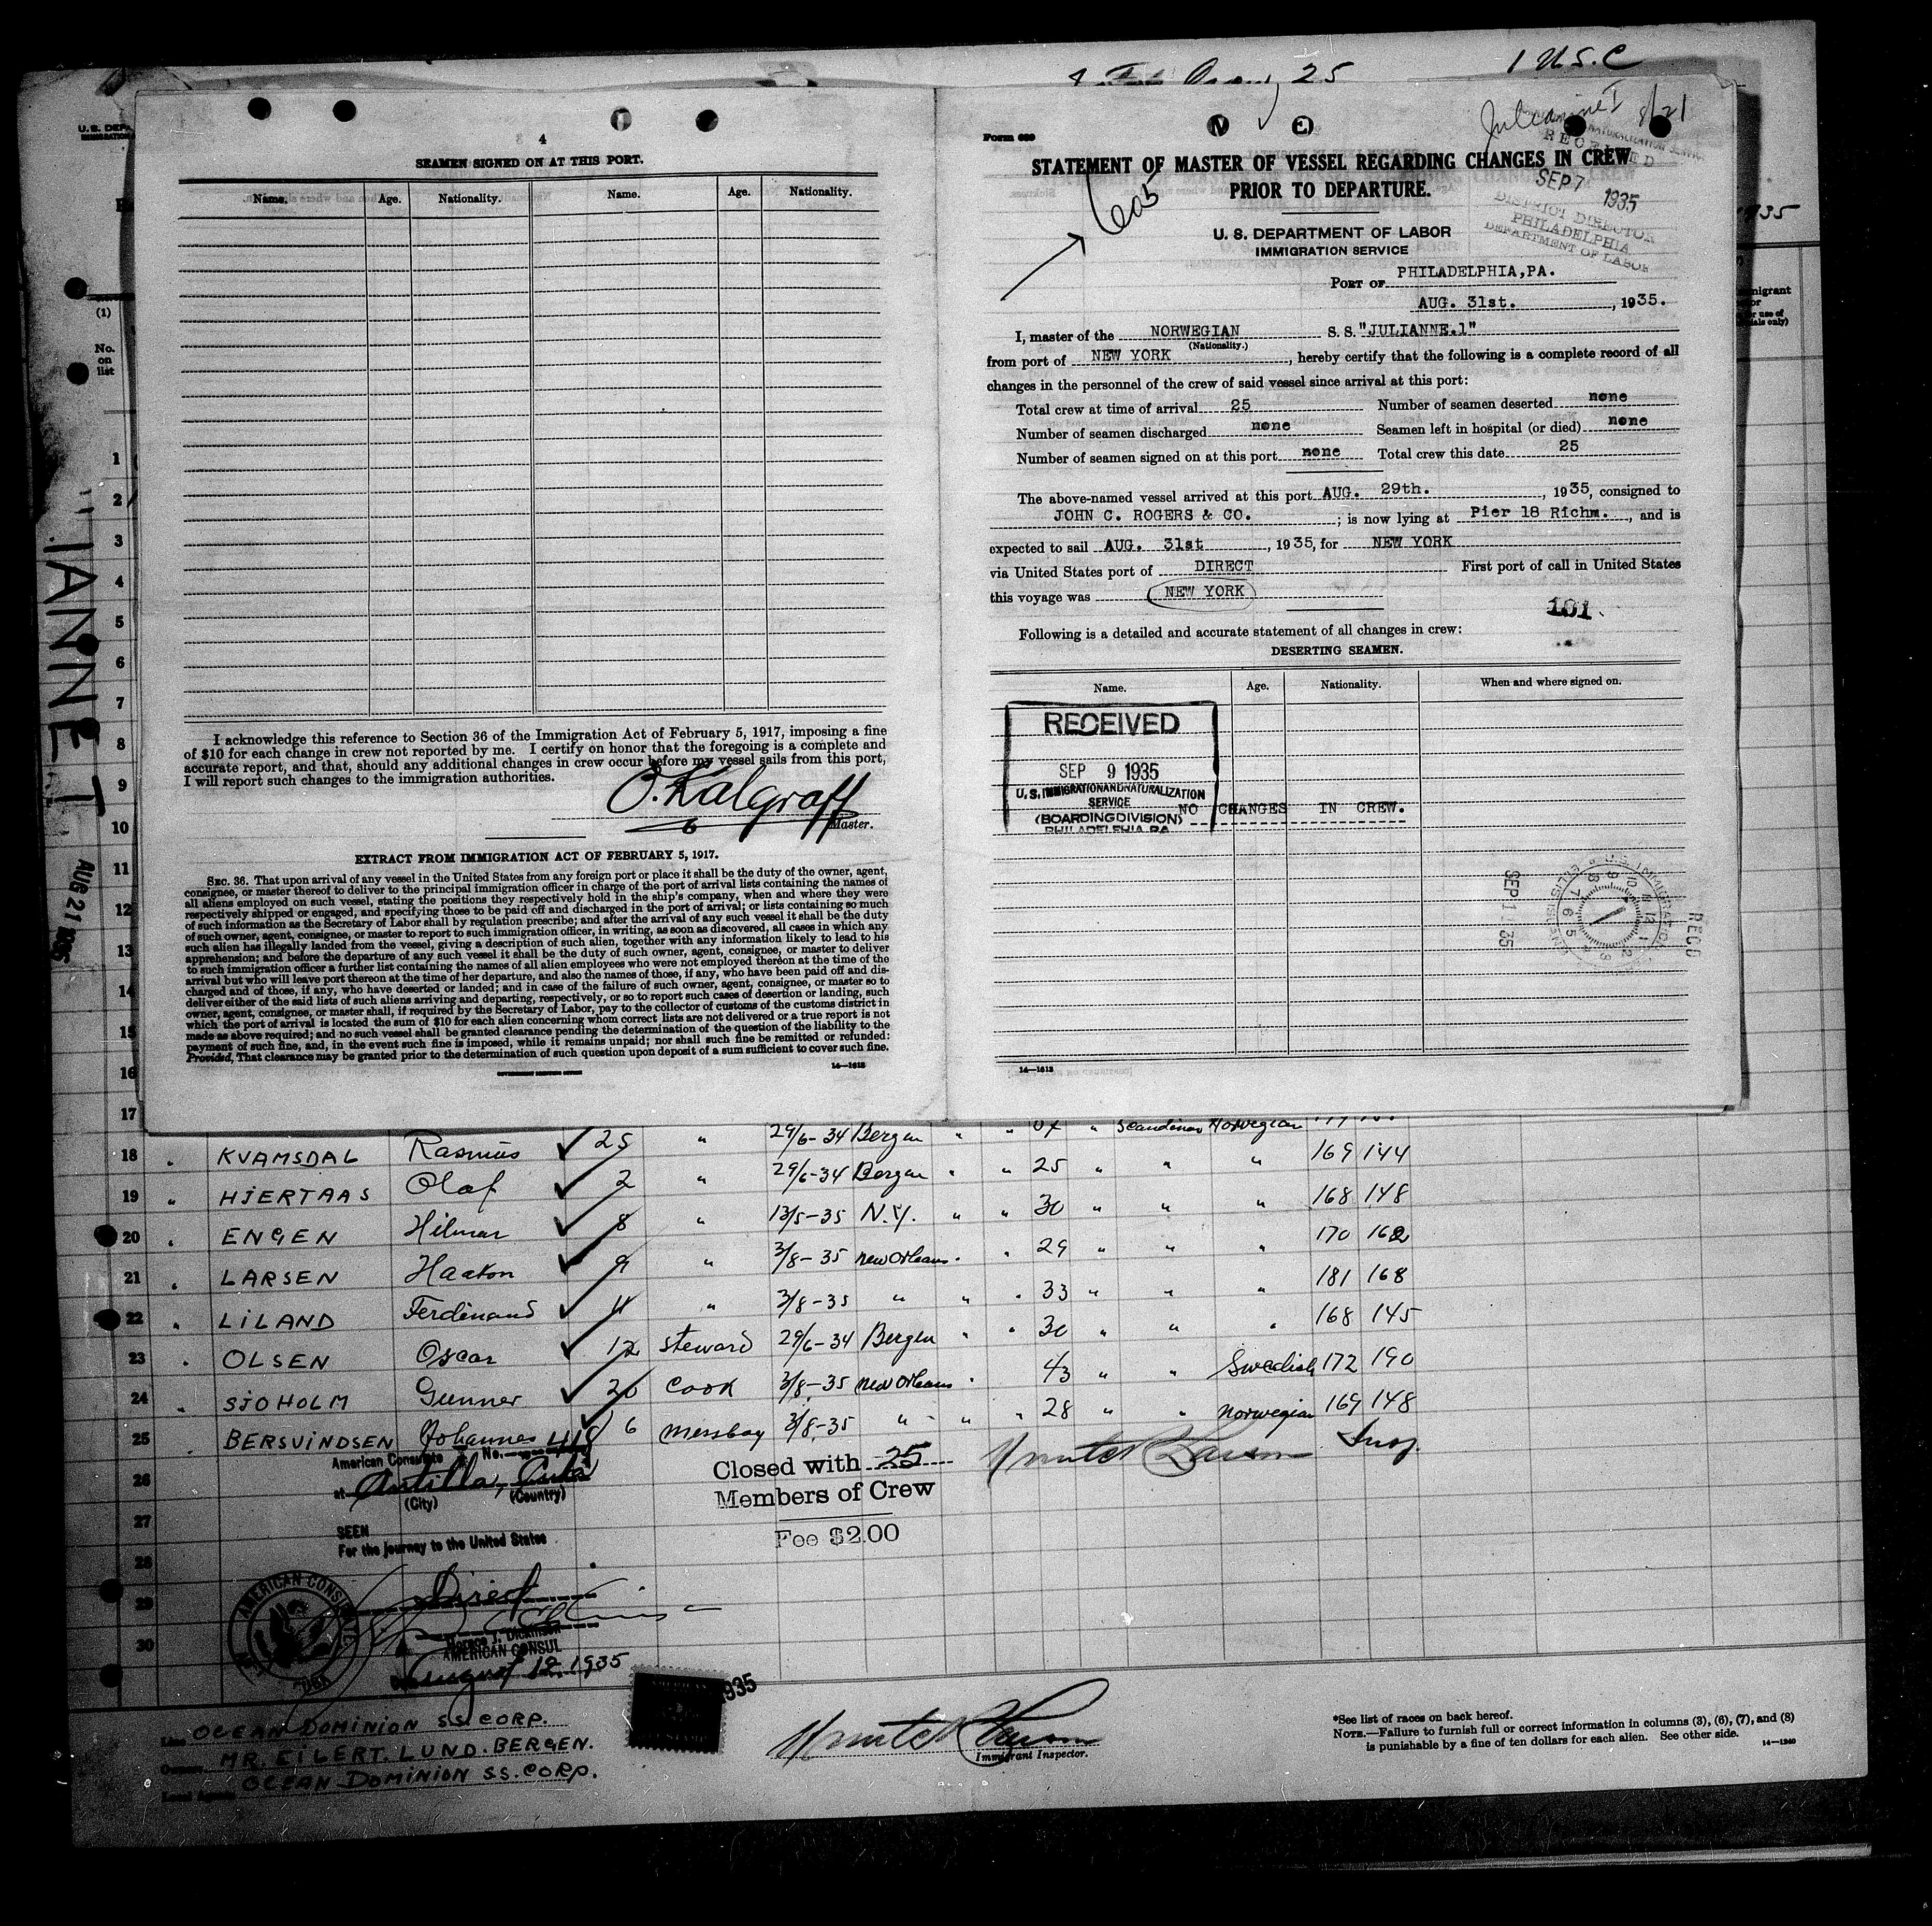 25
1 U.S.C
4
SEAMEN SIGNED ON AT THIS PORT.
Name. Age. Nationality. Name. Age. Nationality.
I acknowledge this reference to Section 36 of the Immigration Act of February 5, 1917, imposing a fine
of $10 for each change in crew not reported by me. I certify on honor that the foregoing is a complete and
accurate report, and that, should any additional changes in crew occur before my vessel sails from this port,
I will report such changes to the immigration authorities.
O. Kalgraff
Master.
EXTRACT FROM IMMIGRATION ACT OF FEBRUARY 5, 1917.
SEC. 36. That upon arrival of any vessel in the United States from any foreign port or place it shall be the duty of the owner, agent,
consignee, or master thereof to deliver to the principal immigration officer in charge of the port of arrival lists containing the names of
all aliens employed on such vessel, stating the positions they respectively hold in the ship's company, when and where they were
respectively shipped or engaged, and specifying those to be paid off and discharged in the port of arrival; or lists containing so much
of such information as the Secretary of Labor shall by regulation prescribe; and after the arrival of any such vessel it shall be the duty
of such owner, agent, consignee, or master to report to such immigration officer, in writing, as soon as discovered, all cases in which any
such alien has illegally landed from the vessel, giving a description of such alien, together with any information likely to lead to his
apprehension; and before the departure of any such vessel it shall be the duty of such owner, agent, consignee, or master to deliver
to such immigration officer a further list containing the names of all alien employees who were not employed thereon at the time of the
arrival but who will leave port thereon at the time of her departure, and also the names of those, if any, who have been paid off and dis-
charged and of those, if any, who have deserted or landed; and in case of the failure of such owner, agent, consignee, or master so to
deliver either of the said lists of such aliens arriving and departing, respectively, or so to report such cases of desertion or landing, such
owner, agent, consignee, or master shall, if required by the Secretary of Labor, pay to the collector of customs of the customs district in
which the port of arrival is located the sum of $10 for each alien concerning whom correct lists are not delivered or a true report is not
made as above required; and no such vessel shall be granted clearance pending the determination of the question of the liability to the
payment of such fine, and, in the event such fine is imposed, while it remains unpaid; nor shall such fine be remitted or refunded:
Provided, That clearance may be granted prior to the determination of such question upon deposit of a sum sufficient to cover such fine.
GOVERNMENT PRINTING OFFICE 14—1613
Form 689
M E
Julianne I 8/21
RECEIVED
SEP 7 1935
DISTRICT DIRECTOR
PHILADELPHIA
DEPARTMENT OF LABOR
STATEMENT OF MASTER OF VESSEL REGARDING CHANGES IN CREW
PRIOR TO DEPARTURE.
U. S. DEPARTMENT OF LABOR
IMMIGRATION SERVICE
PORT OF PHILADELPHIA,PA.
AUG. 31st. , 1935.
I, master of the NORWEGIAN S. S. "JULIANNE.1"
(Nationality.)
from port of NEW YORK , hereby certify that the following is a complete record of all
changes in the personnel of the crew of said vessel since arrival at this port:
Total crew at time of arrival 25 Number of seamen deserted none
Number of seamen discharged none Seamen left in hospital (or died) none
Number of seamen signed on at this port none Total crew this date 25
The above-named vessel arrived at this port AUG. 29th. , 1935, consigned to
JOHN C. ROGERS & CO. ; is now lying at Pier 18 Richm. , and is
expected to sail AUG. 31st , 1935, for NEW YORK
via United States port of DIRECT First port of call in United States
this voyage was NEW YORK
101
Following is a detailed and accurate statement of all changes in crew:
DESERTING SEAMEN.
Name. Age. Nationality. When and where signed on.
RECEIVED
SEP 9 1935
U. S. IMMIGRATION AND NATURALIZATION
SERVICE
(BOARDING DIVISION)
PHILADELPHIA PA.
NO CHANGES IN CREW.
SEP 1 35
RECD
14—1613
(1)
No.
on
list
1
2
3
4
5
6
7
8
9
10
11
12
13
14
15
16
17
IANNE I
AUG 21 1935
18 " KVAMSDAL Rasmus 25 " 29/6-34 Bergen " " " Scandinav Norwegian
19 " HJERTAAS Olaf 2 " 29/6-34 Bergen " " 25 " " " 169 144
20 " ENGEN Hilmar 8 " 13/5-35 N.Y. " " 30 " " " 168 148
21 " LARSEN Haakon 9 " 3/8-35 new orleans " " 29 " " " 170 162
22 " LILAND Ferdinand 11 " 3/8-35 " " " 33 " " " 181 168
23 " OLSEN Oscar 12 steward 29/6-34 Bergen " " 30 " " " 168 145
24 " SJOHOLM Gunner 20 Cook 3/8-35 new orleans " 43 " " Swedish 172 190
25 " BERSVINDSEN Johannes 6 messboy 3/8-35 " " " 28 " " norwegian 169 148
26
27
28
29
30
American Consulate No. 448
at Antilla, Cuba
(City) (Country)
SEEN
For the journey to the United States
Direct
Horace J. Dickinson
AMERICAN CONSUL
August 12, 1935
AMERICAN CONSULATE
Closed with 25
Members of Crew
Fee $2.00
Insp.
1935
Line OCEAN DOMINION SS. CORP.
Owners MR. EILERT. LUND. BERGEN.
Local Agents OCEAN DOMINION SS. CORP.
Immigrant Inspector.
*See list of races on back hereof.
NOTE.—Failure to furnish full or correct information in columns (3), (6), (7), and (8)
is punishable by a fine of ten dollars for each alien. See other side.
14—1240